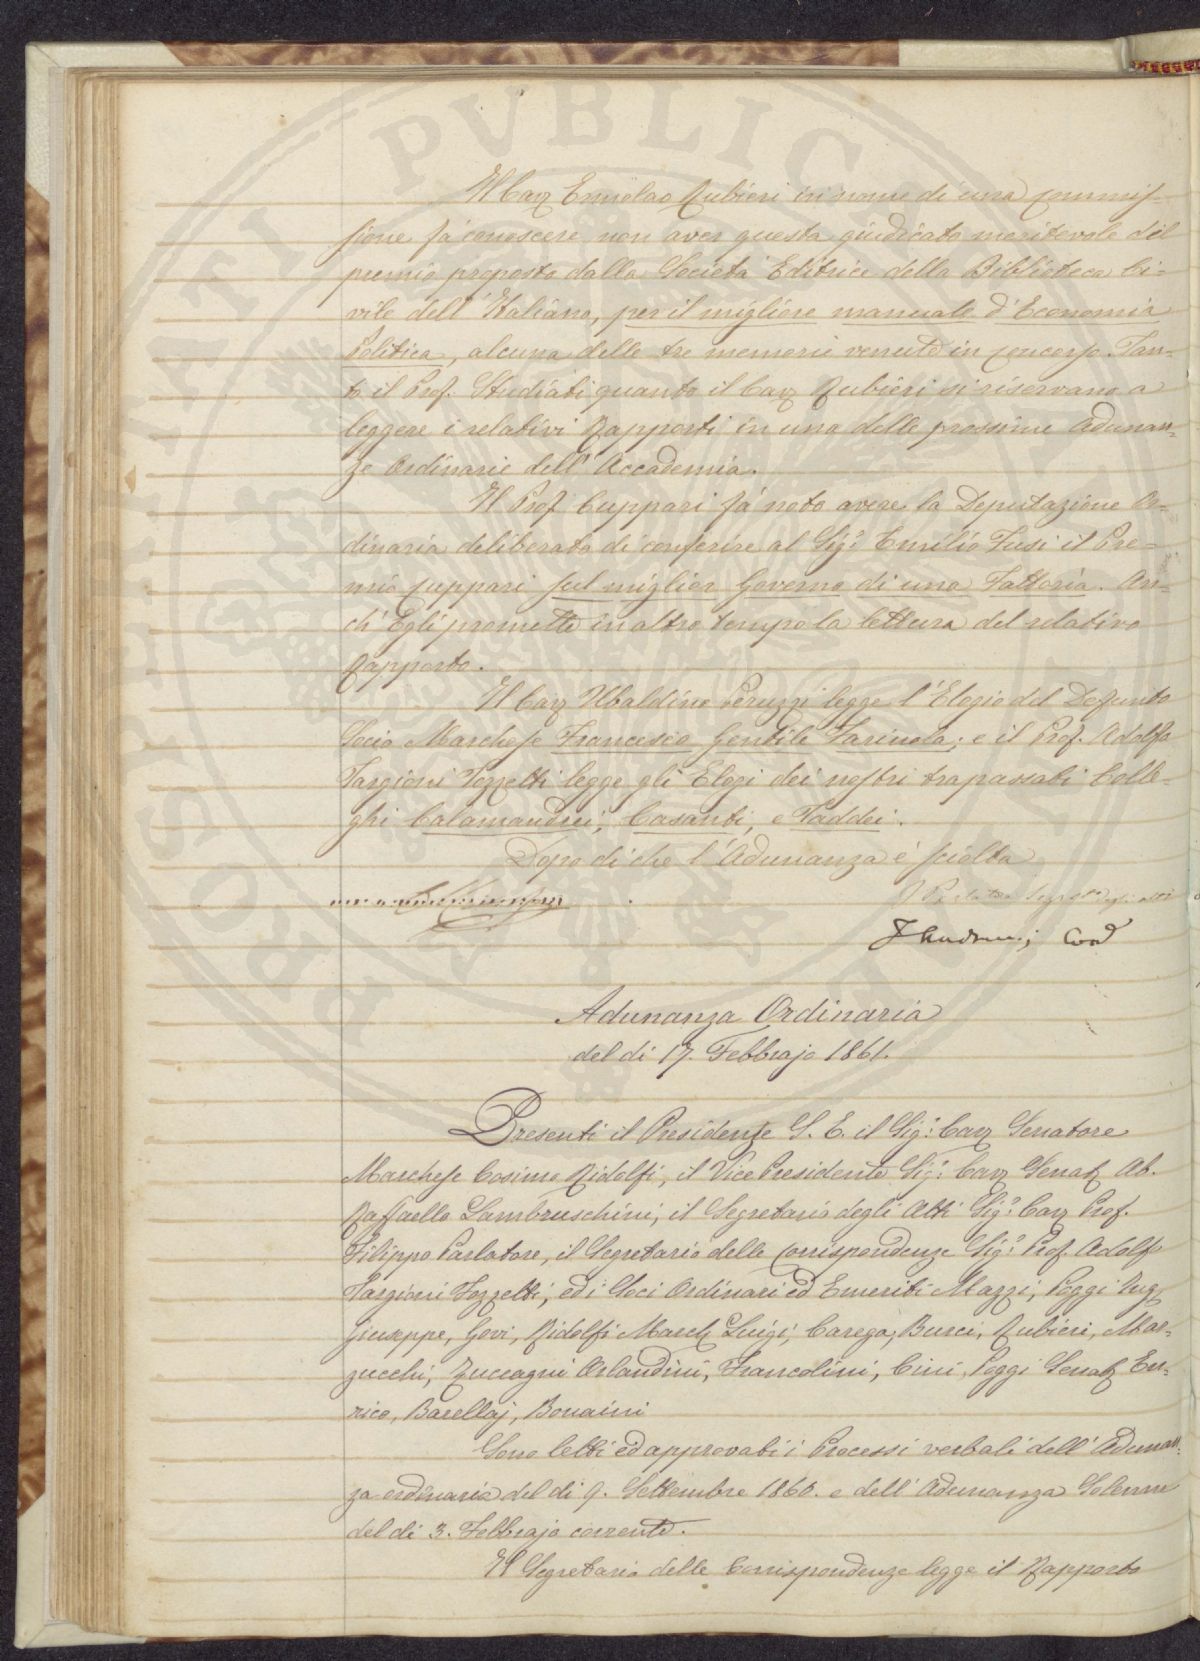 Il Cav Ermolao Rubieri in nome di una commis-
sione fà conoscere non aver questa giudicato meritevole del
premio proposto dalla Società Editrice della Biblioteca Ci-
vile dell'Italiano, per il migliore manuale d'Economia
Politica, alcuna delle tre memorie venute in concorso. Tan-
to il Prof. Studiati quanto il Cav Rubieri si riservano a
leggere i relativi Rapporti in una delle prossime Adunan-
ze Ordinarie dell'Accademia.
Il Prof Cuppari fà noto avere la Deputazione Or-
dinaria deliberato di conferire al Sig.r Emilio Fusi il Pre-
mio Cuppari sul miglior Governo di una Fattoria. An-
ch'Egli promette in altro tempo la lettura del relativo
Rapporto.
Il Cav Ubaldino Peruzzi legge l'Elogio del Defunto
Socio Marchese Francesco Gentile Farinola; e il Prof. Adolfo
Targioni Tozzetti legge gli Elogi dei nostri trapassati Colle-
ghi Calamandrei, Casanti, e Taddei.
Dopo di che l'Adunanza è sciolta
F Parlatore Segret degli atti
Adunanza Ordinaria
del di 17. Febbrajo 1861.
Presenti il Presidente S. E. il Sig.r Cav Senatore
Marchese Cosimo Ridolfi, il Vice Presidente Sig.r Cav Senat Ab.
Raffaello Lambruschini, il Segretario degli Atti Sig.r Cav Prof.
Filippo Parlatore, il Segretario delle Corrispondenze Sig.r Prof. Adolfo
Targioni Tozzetti, ed i Soci Ordinari ed Emeriti Mazzi, Poggi Ing
Giuseppe, Govi, Ridolfi March Luigi, Carega, Burci, Rubieri, Mar-
zucchi, Zuccagni Orlandini, Francolini, Cini, Poggi Senat En-
rico, Barellaj, Bonaini
Sono letti ed approvati i Processi verbali dell'Adunan-
za ordinaria del di 9. Settembre 1860. e dell'Adunanza Solenne
del di 3. Febbrajo corrente.
Il Segretario delle Corrispondenze legge il Rapporto
PVBLICA
PROSPERITATI